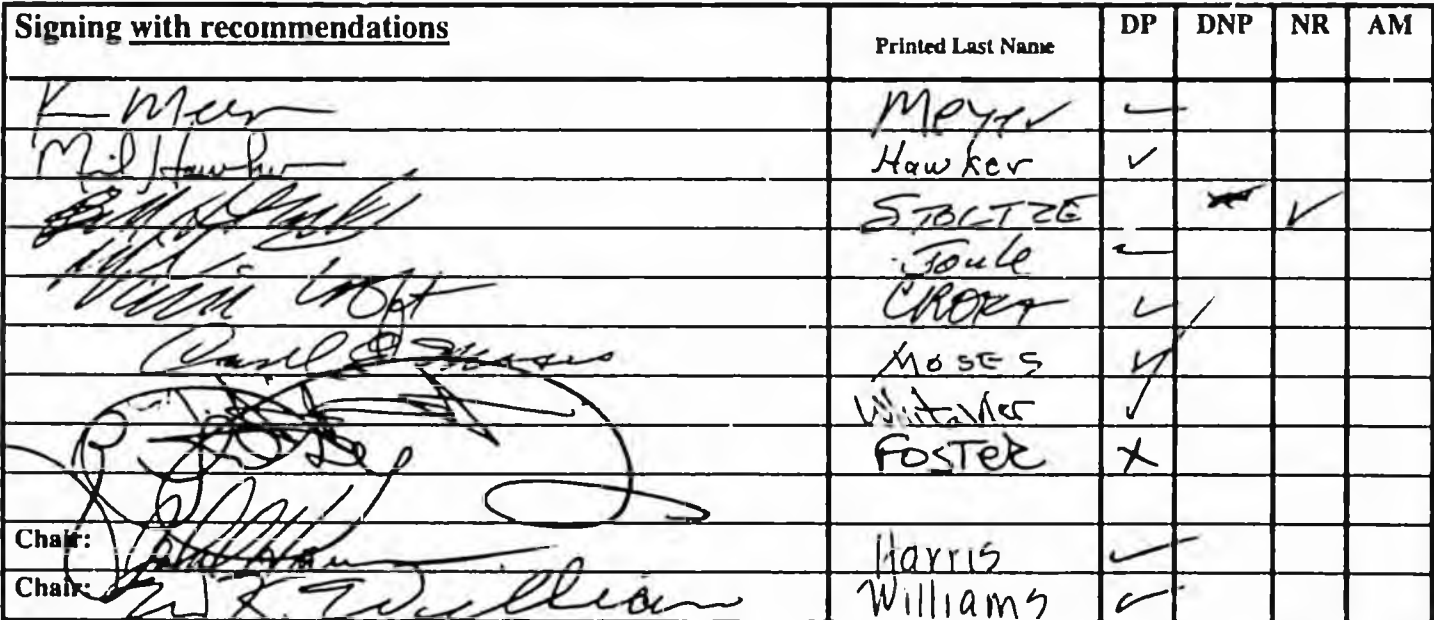 Signing with recommendations Printed Last Name DP DNP NR AM
K Meyer Meyer ✓
Mike Hawker Hawker ✓
STOLTZE ✓
Joule ✓
Croft CROFT ✓
Moses MOSES ✓
Whitaker ✓
FOSTER X
Chair: Harris ✓
Chair: W K Williams Williams ✓